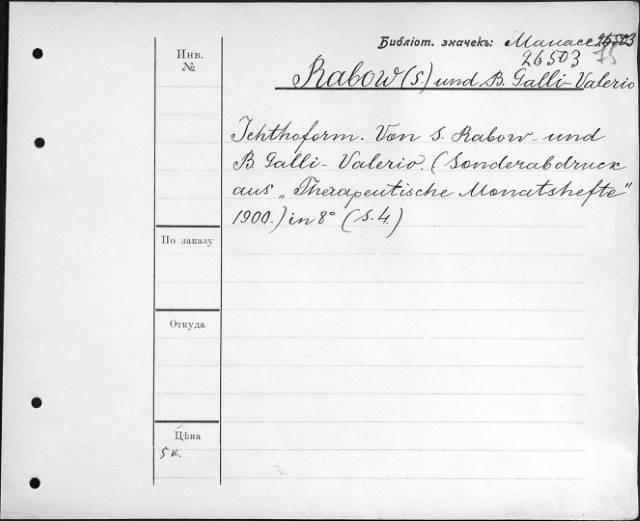 Инв.
№
Библіот. значекъ: Манасс 26503
26503 75
Rabow (S) und B. Galli-Valerio
Ichthoform. Von S. Rabow und
B. Galli-Valerio. (Sonderabdruck
aus „Therapeutische Monatshefte"
1900.) in 8° (S. 4.)
По заказу
Откуда
Цѣна
5 к.